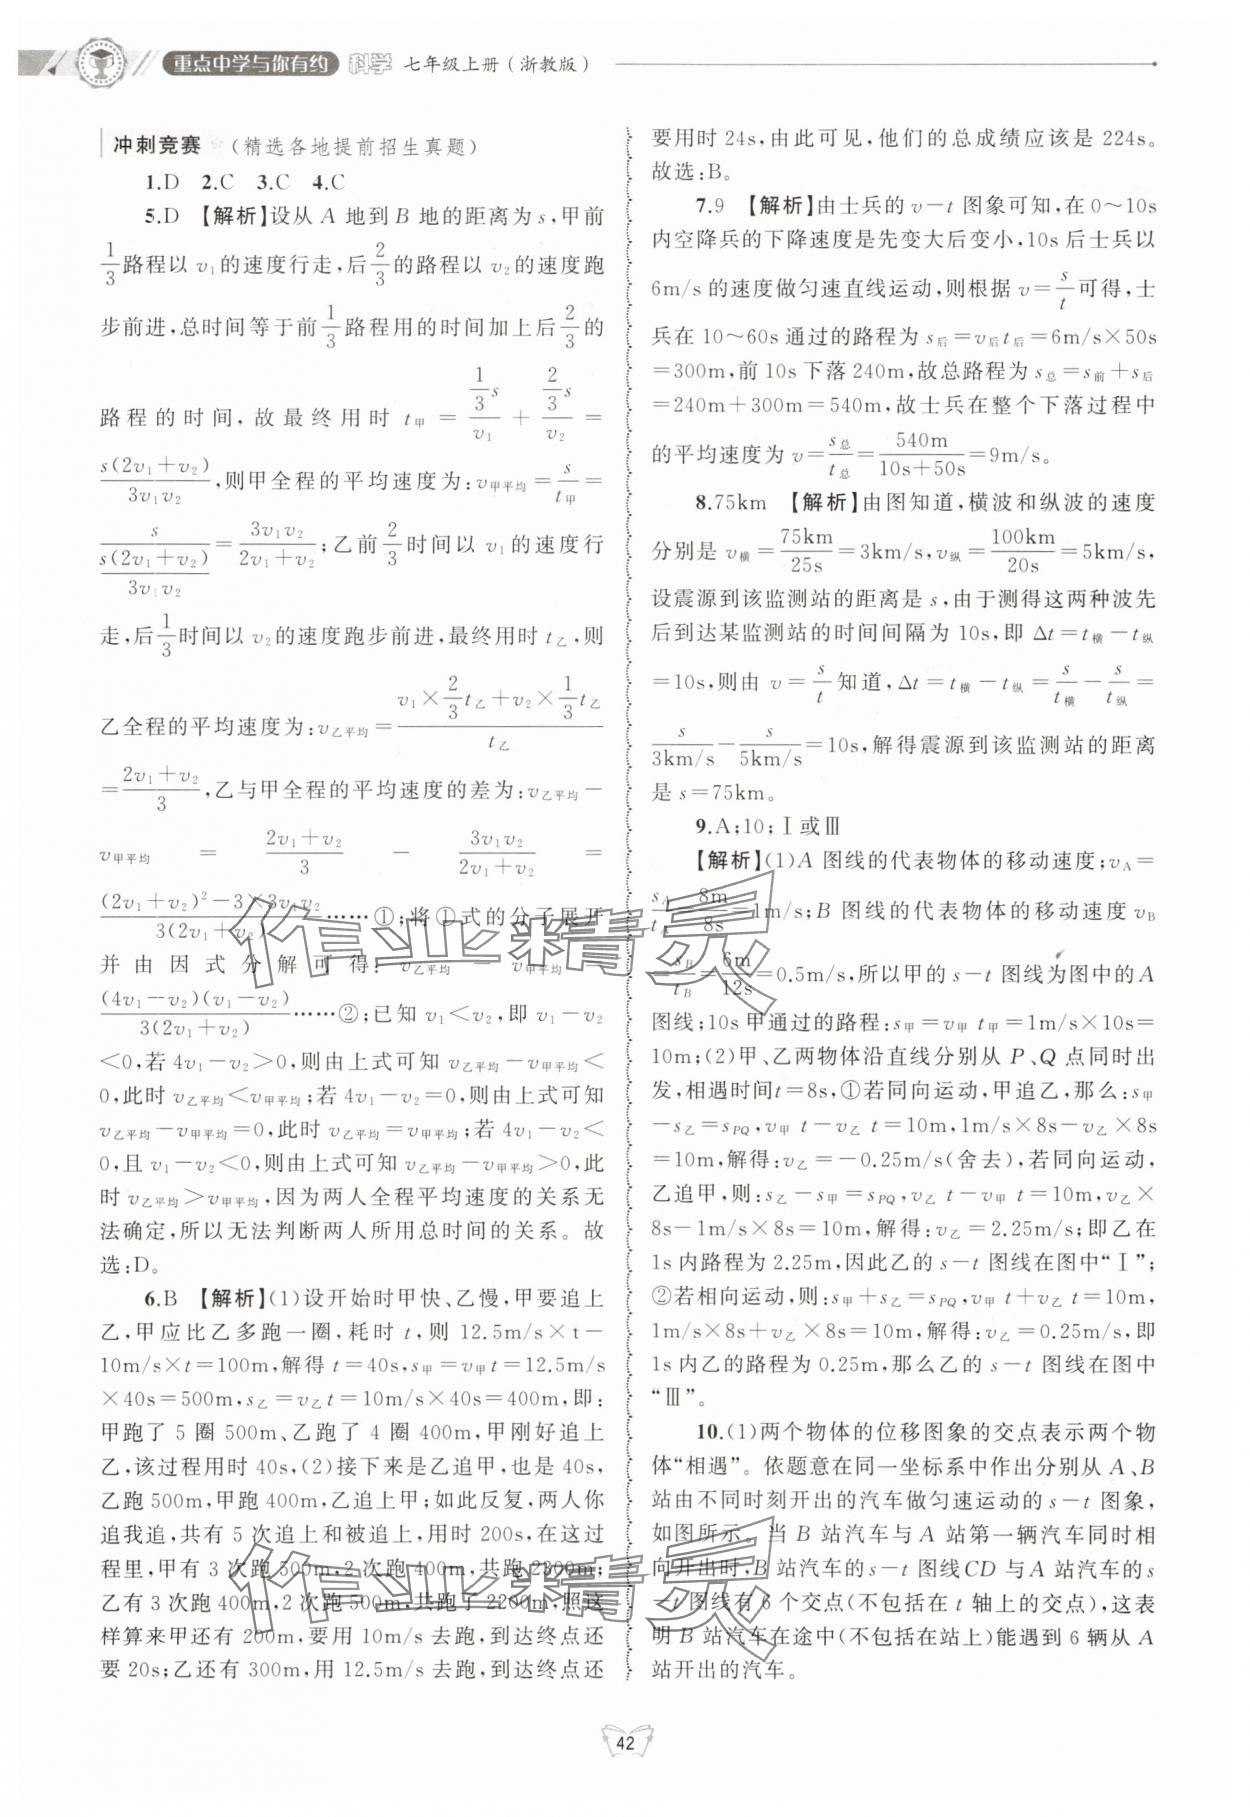 重点中学与你有约 科学 七年级上册(浙教版)
冲刺竞赛 (精选各地提前招生真题)
1.D 2.C 3.C 4.C
5.D 【解析】设从 A 地到 B 地的距离为 s,甲前
1/3路程以 v₁的速度行走,后2/3的路程以 v₂的速度跑
步前进,总时间等于前1/3路程用的时间加上后2/3的
路程的时间,故最终用时 t甲 = (1/3 s)/v₁ + (2/3 s)/v₂ =
s(2v₁+v₂)/3v₁v₂,则甲全程的平均速度为:v甲平均=s/t甲=
s/(s(2v₁+v₂)/3v₁v₂)=3v₁v₂/(2v₁+v₂);乙前2/3时间以 v₁的速度行
走,后1/3时间以 v₂的速度跑步前进,最终用时 t乙,则
乙全程的平均速度为:v乙平均=(v₁×2/3 t乙+v₂×1/3 t乙)/t乙
=(2v₁+v₂)/3,乙与甲全程的平均速度的差为:v乙平均-
v甲平均 = (2v₁+v₂)/3 - 3v₁v₂/(2v₁+v₂) =
((2v₁+v₂)²-3×3v₁v₂)/3(2v₁+v₂)……①;将①式的分子展开
并由因式分解可得:v乙平均 - v甲平均 =
(4v₁-v₂)(v₁-v₂)/3(2v₁+v₂)……②;已知 v₁<v₂,即 v₁-v₂
<0,若 4v₁-v₂>0,则由上式可知 v乙平均-v甲平均<
0,此时 v乙平均<v甲平均;若 4v₁-v₂=0,则由上式可知
v乙平均-v甲平均=0,此时 v乙平均=v甲平均;若 4v₁-v₂<
0,且 v₁-v₂<0,则由上式可知 v乙平均-v甲平均>0,此
时 v乙平均>v甲平均,因为两人全程平均速度的关系无
法确定,所以无法判断两人所用总时间的关系。故
选:D。
6.B 【解析】(1)设开始时甲快、乙慢,甲要追上
乙,甲应比乙多跑一圈,耗时 t,则 12.5m/s×t-
10m/s×t=100m,解得 t=40s,s甲=v甲t=12.5m/s
×40s=500m,s乙=v乙t=10m/s×40s=400m,即:
甲跑了 5 圈 500m、乙跑了 4 圈 400m,甲刚好追上
乙,该过程用时 40s,(2)接下来是乙追甲,也是 40s,
乙跑 500m,甲跑 400m,乙追上甲;如此反复,两人你
追我追,共有 5 次追上和被追上,用时 200s,在这过
程里,甲有 3 次跑 500m,2 次跑 400m,共跑 2300m;
乙有 3 次跑 400m,2 次跑 500m,共跑了 2200m,照这
样算来甲还有 200m,要用 10m/s 去跑,到达终点还
要 20s;乙还有 300m,用 12.5m/s 去跑,到达终点还
要用时 24s,由此可见,他们的总成绩应该是 224s。
故选:B。
7.9 【解析】由士兵的 v-t 图象可知,在 0~10s
内空降兵的下降速度是先变大后变小,10s 后士兵以
6m/s 的速度做匀速直线运动,则根据 v=s/t可得,士
兵在 10~60s 通过的路程为 s后=v后t后=6m/s×50s
=300m,前 10s 下落 240m,故总路程为 s总=s前+s后
=240m+300m=540m,故士兵在整个下落过程中
的平均速度为 v=s总/t总=540m/(10s+50s)=9m/s。
8.75km 【解析】由图知道,横波和纵波的速度
分别是 v横=75km/25s=3km/s,v纵=100km/20s=5km/s,
设震源到该监测站的距离是 s,由于测得这两种波先
后到达某监测站的时间间隔为 10s,即 Δt=t横-t纵
=10s,则由 v=s/t知道,Δt=t横-t纵=s/t横-s/t纵=
s/3km/s-s/5km/s=10s,解得震源到该监测站的距离
是 s=75km。
9.A;10;Ⅰ或Ⅲ
【解析】(1)A 图线的代表物体的移动速度;vA=
sA/tA=8m/8s=1m/s;B 图线的代表物体的移动速度 vB
=sB/tB=6m/12s=0.5m/s,所以甲的 s-t 图线为图中的 A
图线;10s 甲通过的路程:s甲=v甲 t甲=1m/s×10s=
10m;(2)甲、乙两物体沿直线分别从 P、Q 点同时出
发,相遇时间t=8s,①若同向运动,甲追乙,那么:s甲
-s乙=sPQ,v甲 t-v乙 t=10m,1m/s×8s-v乙×8s
=10m,解得:v乙=-0.25m/s(舍去),若同向运动,
乙追甲,则:s乙-s甲=sPQ,v乙 t-v甲 t=10m,v乙×
8s-1m/s×8s=10m,解得:v乙=2.25m/s;即乙在
1s 内路程为 2.25m,因此乙的 s-t 图线在图中“Ⅰ”;
②若相向运动,则:s甲+s乙=sPQ,v甲 t+v乙 t=10m,
1m/s×8s+v乙×8s=10m,解得:v乙=0.25m/s,即
1s 内乙的路程为 0.25m,那么乙的 s-t 图线在图中
“Ⅲ”。
10.(1)两个物体的位移图象的交点表示两个物
体“相遇”。依题意在同一坐标系中作出分别从 A、B
站由不同时刻开出的汽车做匀速运动的 s-t 图象,
如图所示。当 B 站汽车与 A 站第一辆汽车同时相
向开出时,B 站汽车的 s-t 图线CD 与A 站汽车的 s
-t 图线有 6 个交点(不包括在 t 轴上的交点),这表
明 B 站汽车在途中(不包括在站上)能遇到 6 辆从 A
站开出的汽车。
作业精灵
作业精灵
42